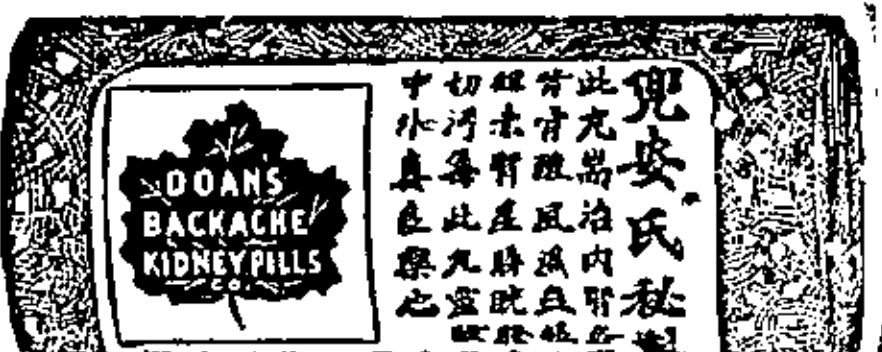 DOAN'S
BACKACHE
KIDNEY PILLS
CO.
兜安氏秘
此丸耑治內腎
背骨酸風濕血
腰素腎產膀胱
切污毒此丸靈
中水真良藥也